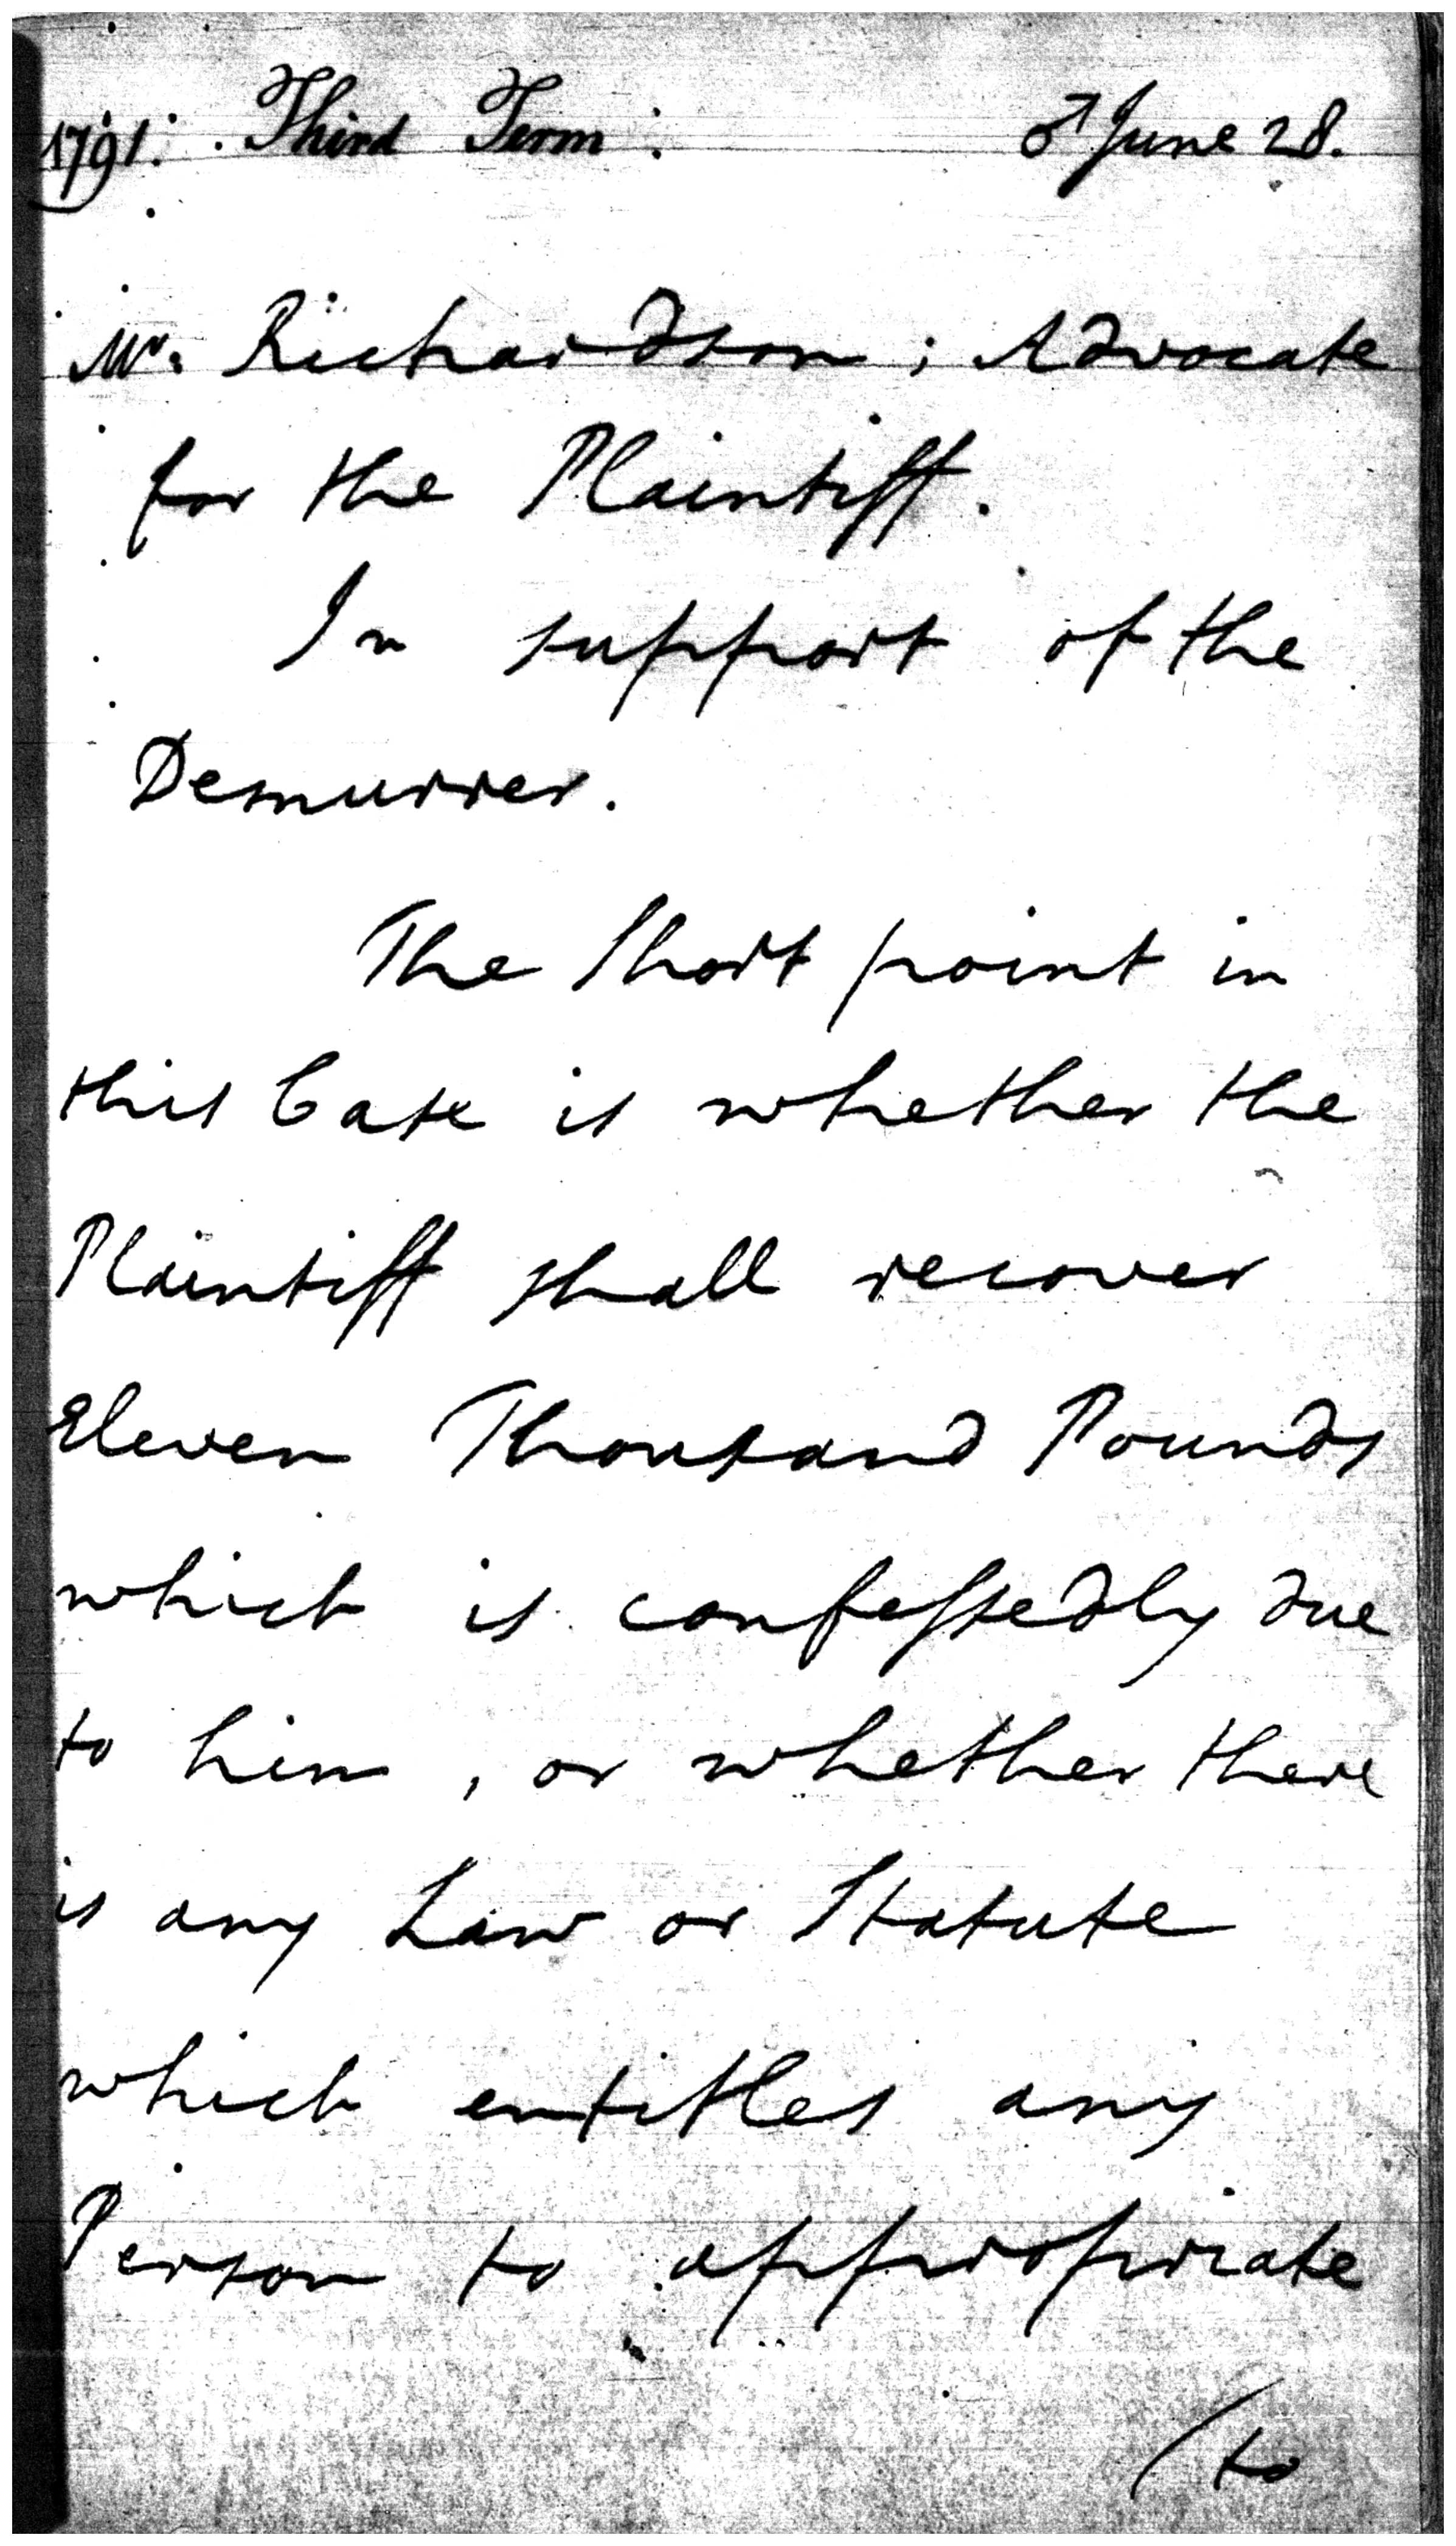 1791. Third Term. ♂ June 28.
Mr. Richardson; Advocate
for the Plaintiff.
In support of the
Demurrer.
The Short point in
this Case is whether the
Plaintiff shall recover
Eleven Thousand Pounds
which is confessedly due
to him, or whether there
is any Law or Statute
which entitles any
Person to appropriate
(to